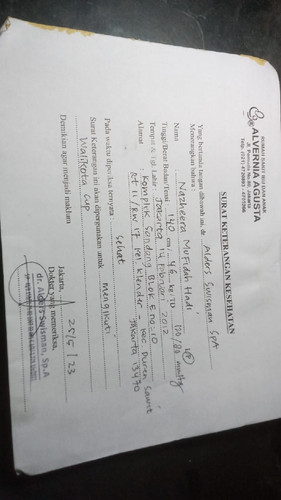 RUMAH SAKIT IBU DAN ANAK
ALVERNIA AGUSTA
SURAT KETERANGAN KESEHATAN
Yang bertanda tangan dibawah ini, dr. Alders Swisman SpA
Menerangkan bahwa :
Nama : Nazheera Mufidah Hadi
Tinggi/Berat Badan/Tensi : 140 cm / 46 kg/TD 110/80 mmHg
Tempat & Tgl. Lahir : Jakarta 14 Februari 2012
Alamat : Komplek Sandang Blok E no. 10
Rt 11 / Rw 17 Kel Klender Kec Duren Sawit
Jakarta 13470
Pada waktu diperiksa ternyata sehat
Surat Keterangan ini akan dipergunakan untuk mengikuti
Walikota Cup
Demikian agar menjadi maklum
Jakarta, 25/5/23
Dokter yang memeriksa,
dr. Alders Swisman, Sp.A